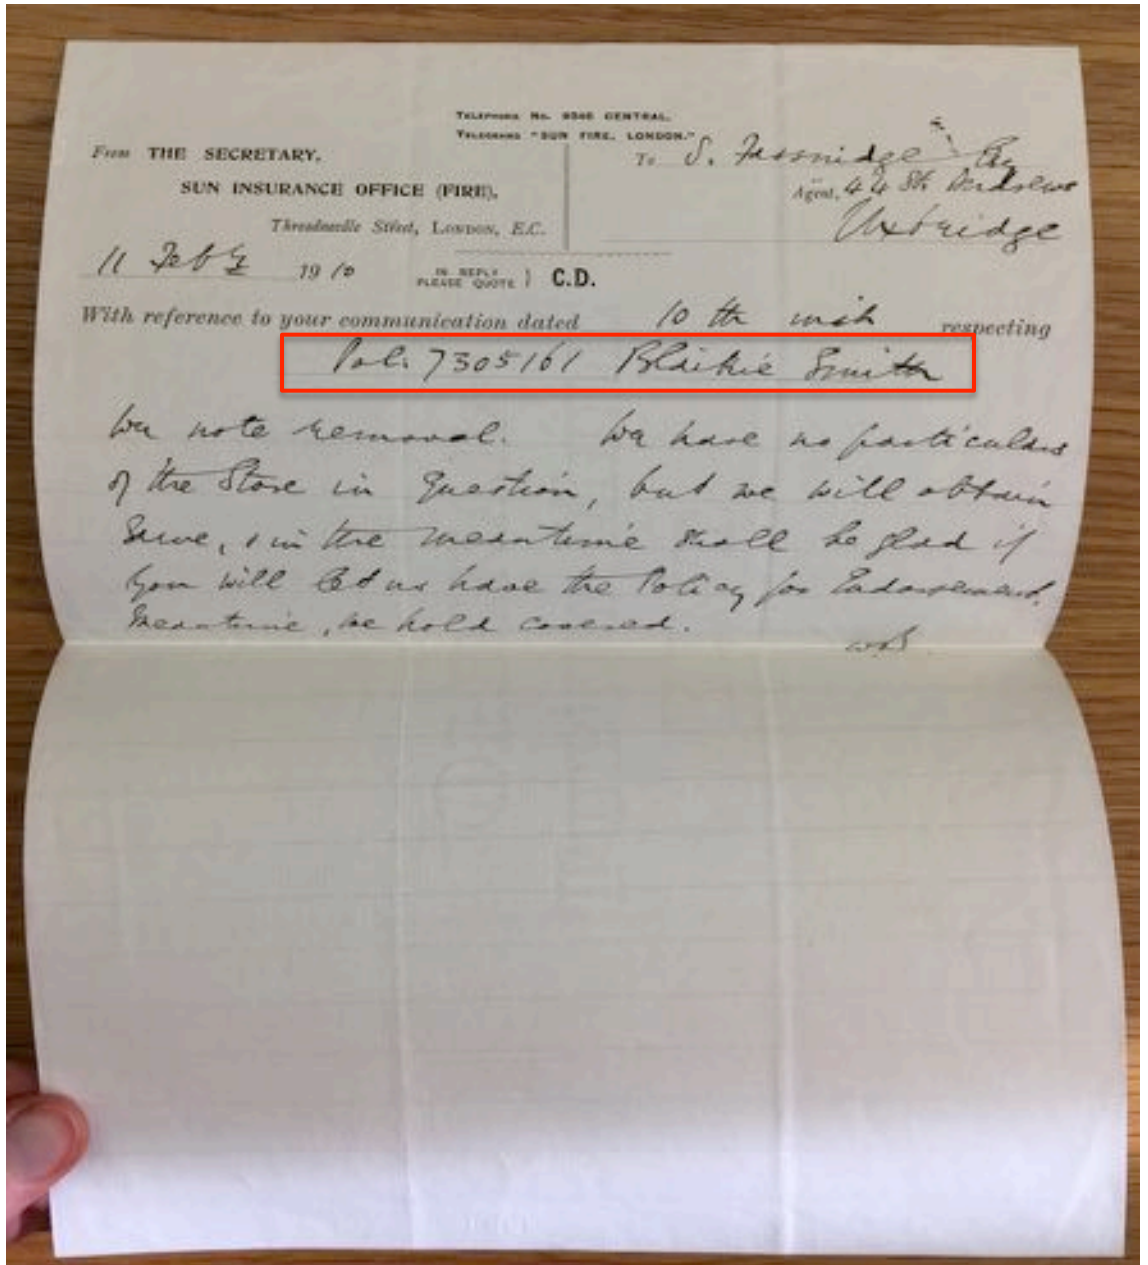 TELEPHONE No. 8346 CENTRAL.
TELEGRAMS "SUN FIRE, LONDON."
From THE SECRETARY,
SUN INSURANCE OFFICE (FIRE),
Threadneedle Street, LONDON, E.C.
To S. Fassnidge Esq
Agent, 44 St. Andrews
Uxbridge
11 Feby 1910
IN REPLY PLEASE QUOTE } C.D.
With reference to your communication dated 10th inst respecting
Pol. 7305161 Blaikie Smith
We note removal. We have no particulars
of the Store in question, but we will obtain
same, & in the meantime shall be glad if
you will let us have the Policy for Endorsement.
Meantime, we hold covered.